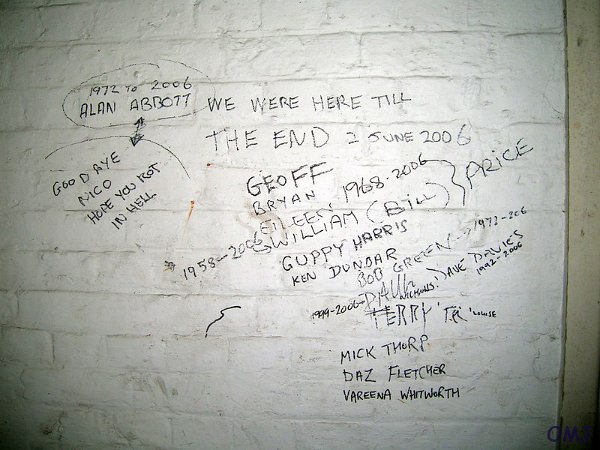 1972 TO 2006
ALAN ABBOTT
WE WERE HERE TILL
THE END 2 JUNE 2006
GOODAYE
NICO
HOPE YOU ROT
IN HELL
GEOFF
BRYAN
EILEEN, 1968-2006
WILLIAM (BILL) } PRICE
1958-2006
GUPPY HARRIS
KEN DUNBAR
BOB GREEN -> 1972-206
1999-2006 - PAUL
DAVE DAVIES
1992-2006
TERRY
LOUISE
MICK THORP
DAZ FLETCHER
VAREENA WHITWORTH
OMJ